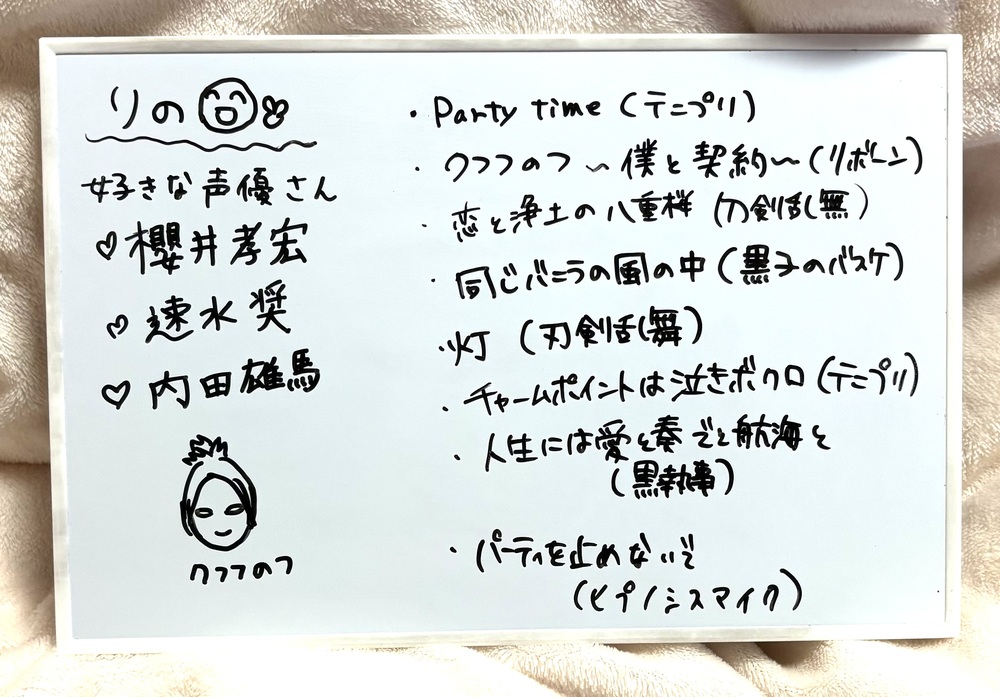 りの
好きな声優さん
♡櫻井孝宏
♡速水奨
♡内田雄馬
クフフのフ
・Party time (テニプリ)
・クフフのフ〜僕と契約〜(リボーン)
・恋と浄土の八重桜 (刀剣乱無)
・同じバニラの風の中(黒子のバスケ)
・灯 (刃剣乱舞)
・チャームポイントは泣きボクロ(テニプリ)
・人生には愛と奏でと航海と
(黒執事)
・パーティを止めないで
(ヒプノシスマイク)